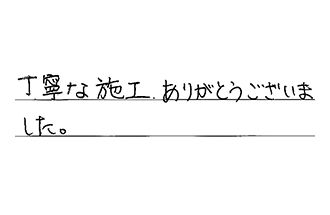 丁寧な施工、ありがとうございま
した。